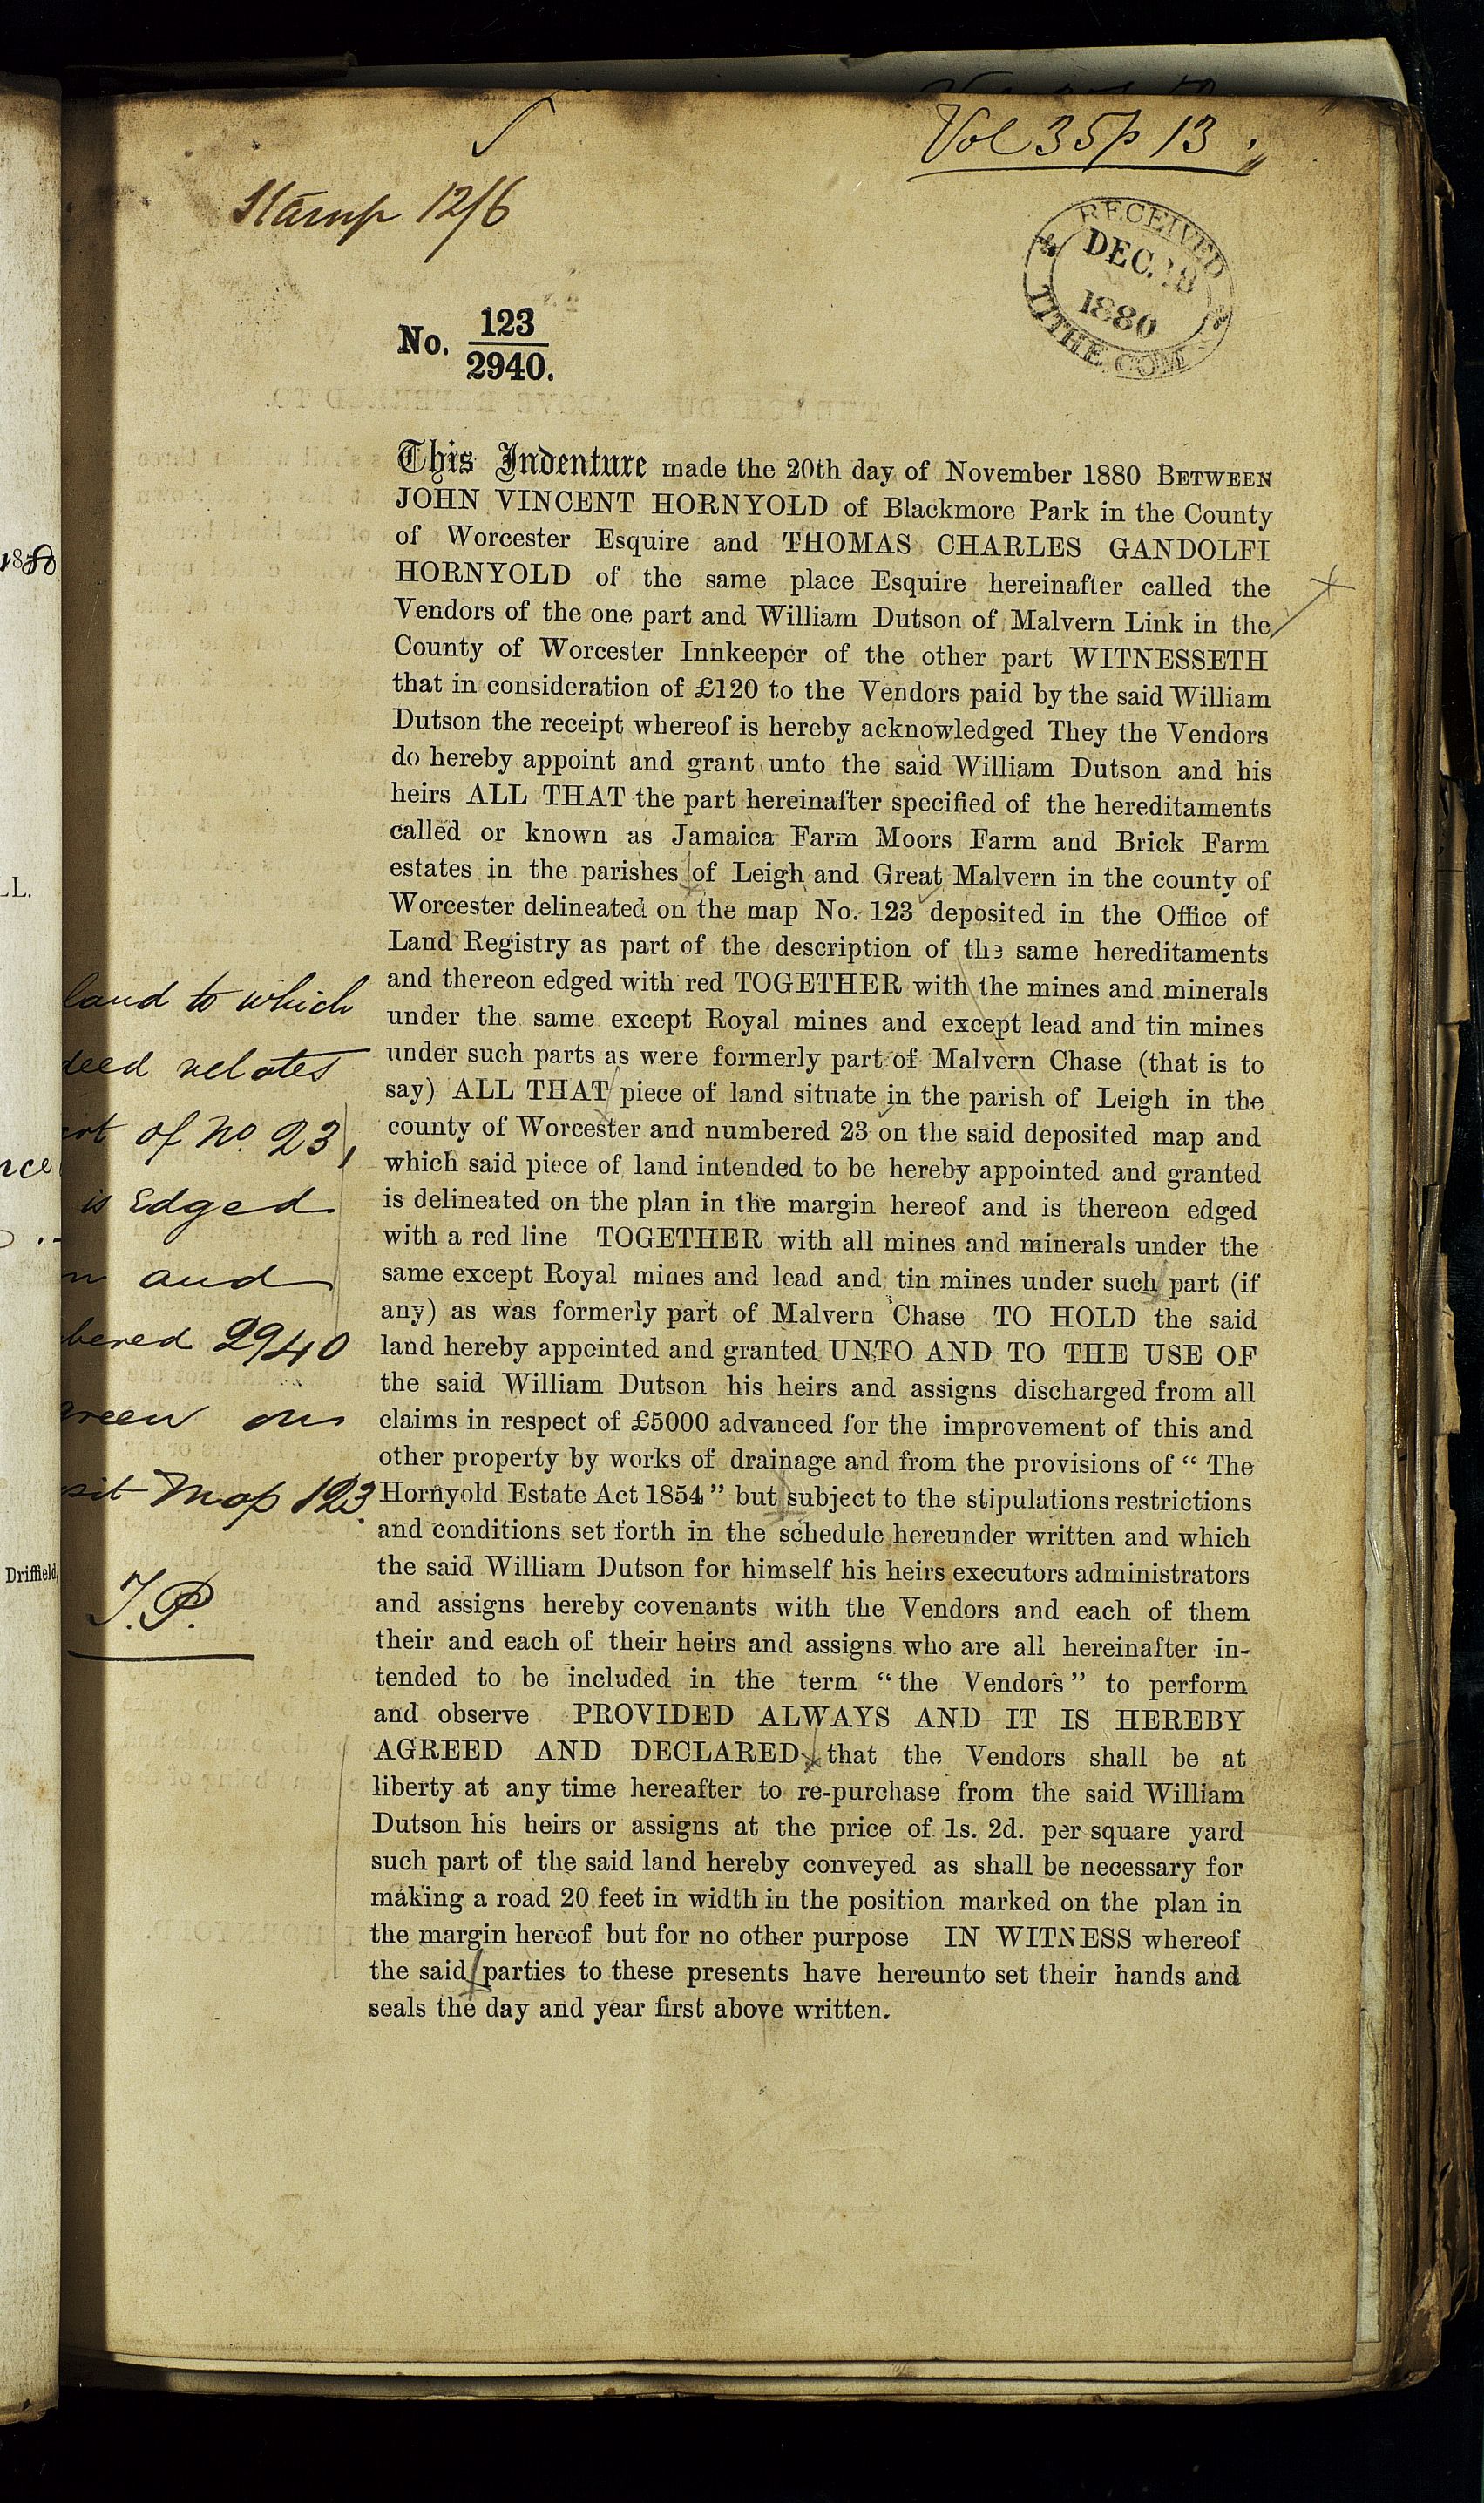 Vol 35 p 13
Stamp 12/6
RECEIVED
DEC.
1880
TITHE COM
No. 123
2940.
This Indenture made the 20th day of November 1880 BETWEEN
JOHN VINCENT HORNYOLD of Blackmore Park in the County
of Worcester Esquire and THOMAS CHARLES GANDOLFI
HORNYOLD of the same place Esquire hereinafter called the
Vendors of the one part and William Dutson of Malvern Link in the
County of Worcester Innkeeper of the other part WITNESSETH
that in consideration of £120 to the Vendors paid by the said William
Dutson the receipt whereof is hereby acknowledged They the Vendors
do hereby appoint and grant unto the said William Dutson and his
heirs ALL THAT the part hereinafter specified of the hereditaments
called or known as Jamaica Farm Moors Farm and Brick Farm
estates in the parishes of Leigh and Great Malvern in the county of
Worcester delineated on the map No. 123 deposited in the Office of
Land Registry as part of the description of the same hereditaments
and thereon edged with red TOGETHER with the mines and minerals
under the same except Royal mines and except lead and tin mines
under such parts as were formerly part of Malvern Chase (that is to
say) ALL THAT piece of land situate in the parish of Leigh in the
county of Worcester and numbered 23 on the said deposited map and
which said piece of land intended to be hereby appointed and granted
is delineated on the plan in the margin hereof and is thereon edged
with a red line TOGETHER with all mines and minerals under the
same except Royal mines and lead and tin mines under such part (if
any) as was formerly part of Malvern Chase TO HOLD the said
land hereby appointed and granted UNTO AND TO THE USE OF
the said William Dutson his heirs and assigns discharged from all
claims in respect of £5000 advanced for the improvement of this and
other property by works of drainage and from the provisions of “ The
Hornyold Estate Act 1854 ” but subject to the stipulations restrictions
and conditions set forth in the schedule hereunder written and which
the said William Dutson for himself his heirs executors administrators
and assigns hereby covenants with the Vendors and each of them
their and each of their heirs and assigns who are all hereinafter in-
tended to be included in the term “ the Vendors ” to perform
and observe PROVIDED ALWAYS AND IT IS HEREBY
AGREED AND DECLARED that the Vendors shall be at
liberty at any time hereafter to re-purchase from the said William
Dutson his heirs or assigns at the price of 1s. 2d. per square yard
such part of the said land hereby conveyed as shall be necessary for
making a road 20 feet in width in the position marked on the plan in
the margin hereof but for no other purpose IN WITNESS whereof
the said parties to these presents have hereunto set their hands and
seals the day and year first above written.
land to which
deed relates
of No. 23,
is Edged
and
2940
on
Map 123.
T.P.
1880
LL.
Driffield,